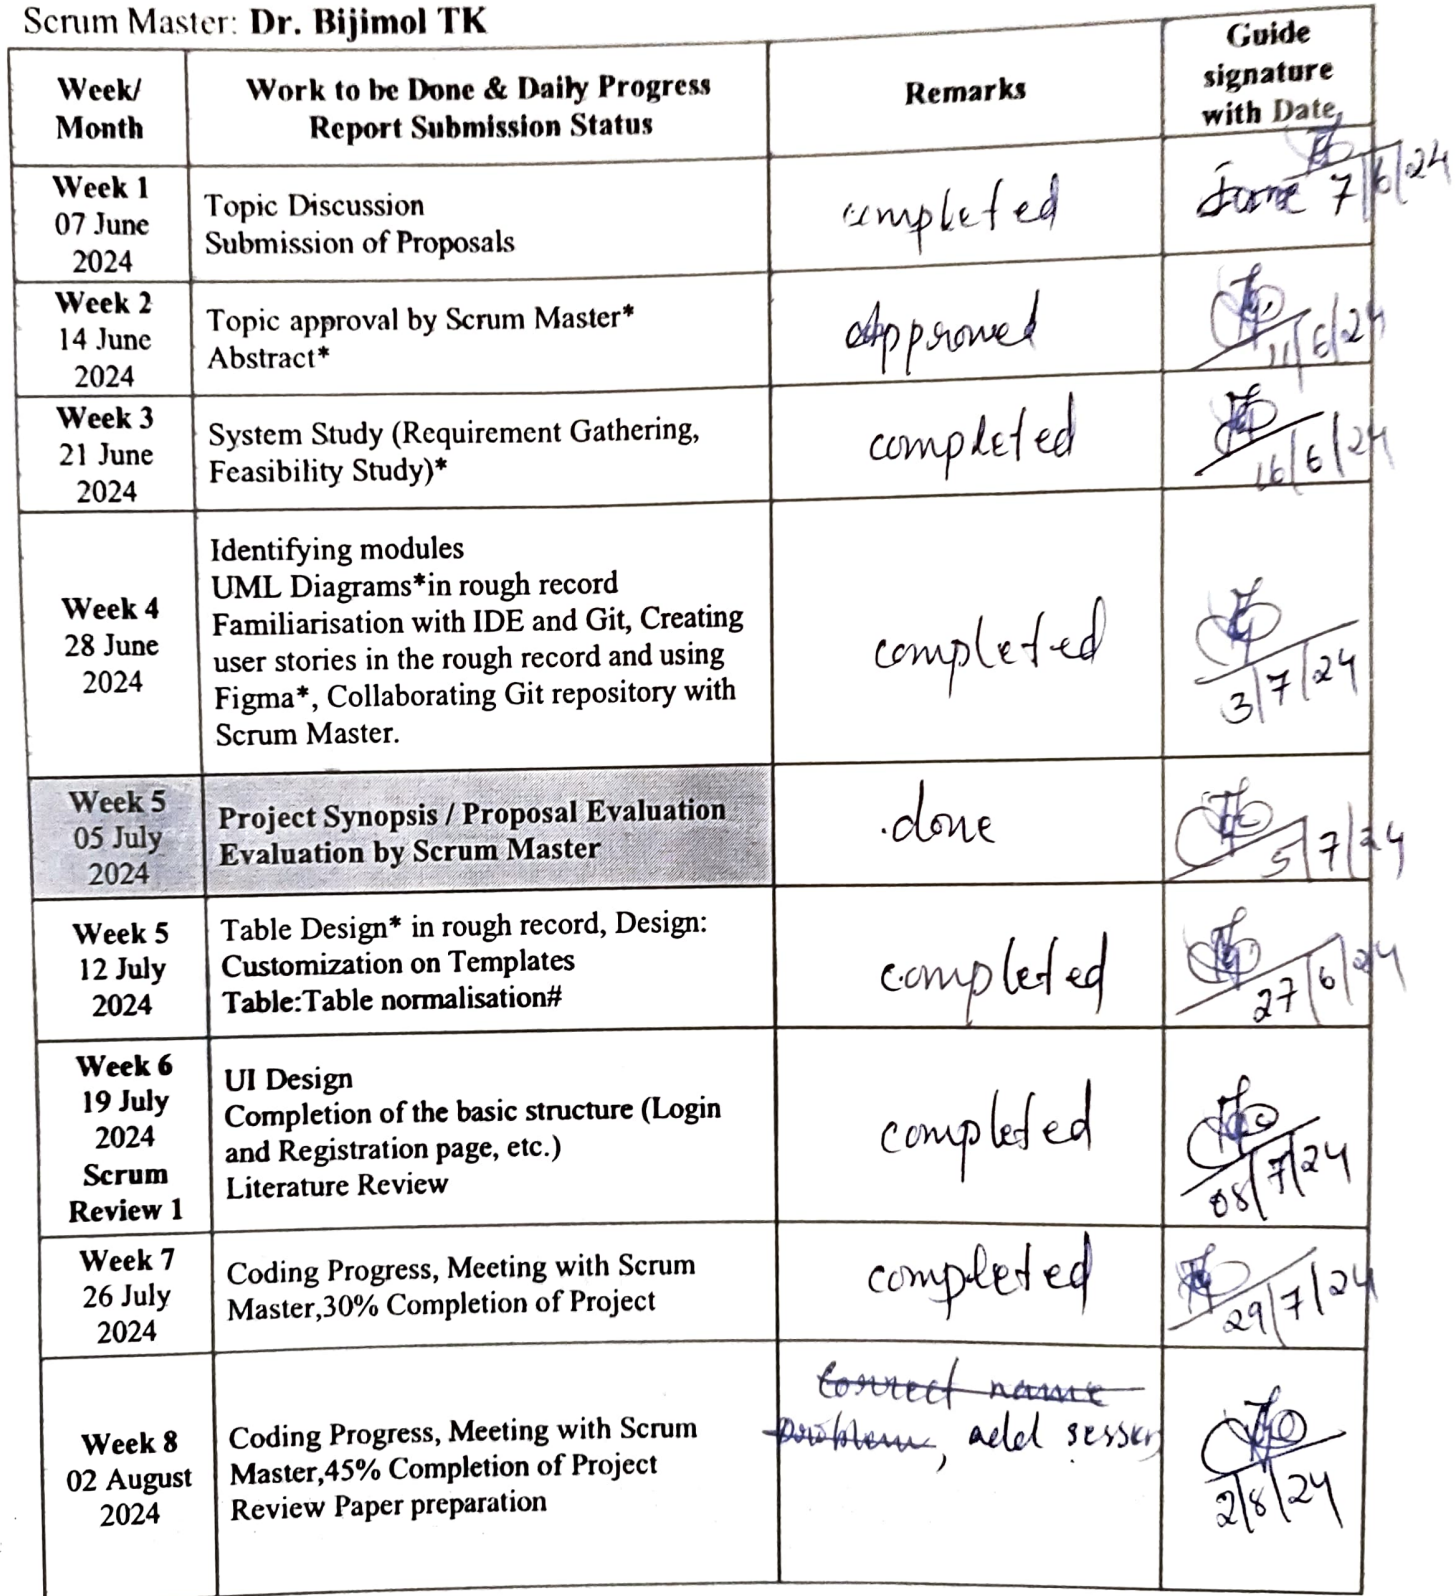 Scrum Master: Dr. Bijimol TK
Week/
Month
Work to be Done & Daily Progress
Report Submission Status
Remarks
Guide
signature
with Date
Week 1
07 June
2024
Topic Discussion
Submission of Proposals
completed
June 7/6/24
Week 2
14 June
2024
Topic approval by Scrum Master*
Abstract*
Approved
11/6/24
Week 3
21 June
2024
System Study (Requirement Gathering,
Feasibility Study)*
completed
16/6/24
Week 4
28 June
2024
Identifying modules
UML Diagrams*in rough record
Familiarisation with IDE and Git, Creating
user stories in the rough record and using
Figma*, Collaborating Git repository with
Scrum Master.
completed
3/7/24
Week 5
05 July
2024
Project Synopsis / Proposal Evaluation
Evaluation by Scrum Master
done
5/7/24
Week 5
12 July
2024
Table Design* in rough record, Design:
Customization on Templates
Table:Table normalisation#
completed
27/6/24
Week 6
19 July
2024
Scrum
Review 1
UI Design
Completion of the basic structure (Login
and Registration page, etc.)
Literature Review
completed
08/7/24
Week 7
26 July
2024
Coding Progress, Meeting with Scrum
Master,30% Completion of Project
completed
29/7/24
Week 8
02 August
2024
Coding Progress, Meeting with Scrum
Master,45% Completion of Project
Review Paper preparation
Correct name
problem, add
2/8/24